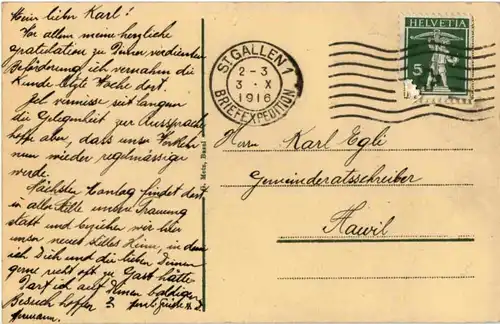 Mein lieber Karl!
Vor allem meine herzliche
Gratulation zu Deiner verdienten
Beförderung, ich vernahm die
Kunde letzte Woche dort.
Ich vermisse seit langem
die Gelegenheit zur Aussprache
hoffe aber, dass unser Verkehr
nun wieder regelmässiger
werde.
Nächsten Montag findet dort
in aller Stille unsere Trauung
statt und beziehen wir hier
unser neues stilles Heim, in dem
ich Dich und die lieben Deinen
gerne recht oft zu Gast hätte
Darf ich auf Deinen baldigen
Besuch hoffen?
Hermann.
ST. GALLEN 1
2-3
3 · X
1916
BRIEFEXPEDITION
HELVETIA
5
Herrn Karl Egli
Gemeinderatsschreiber
Flawil
Metz, Basel